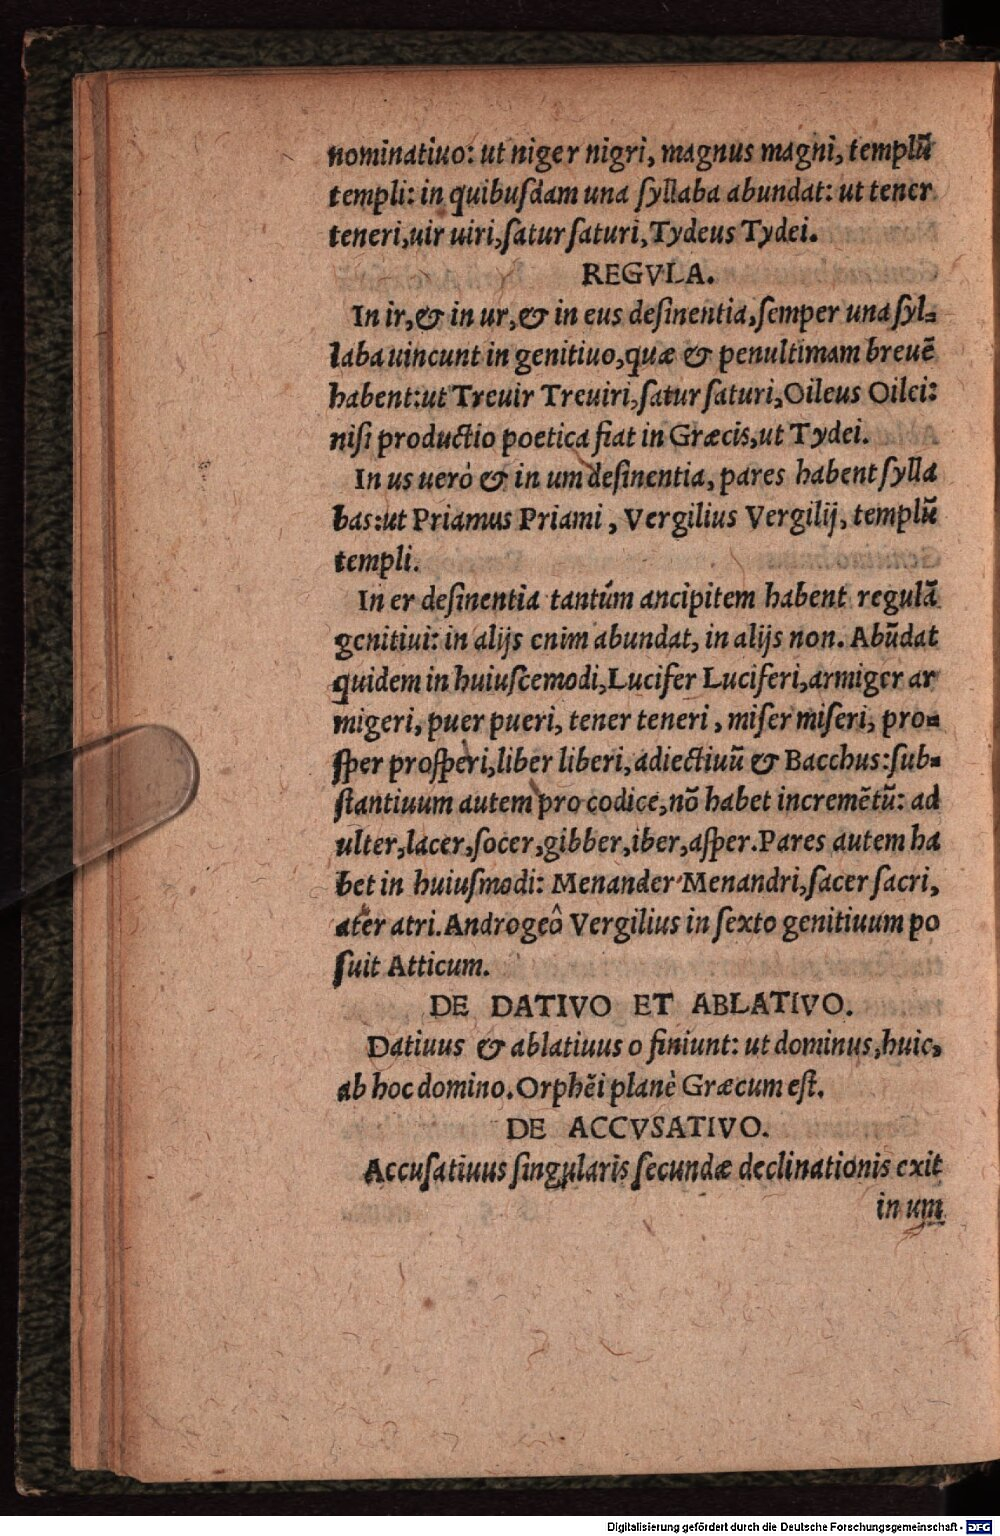 nominatiuo: ut niger nigri, magnus magni, templũ
templi: in quibuſdam una ſyllaba abundat: ut tener
teneri, uir uiri, ſatur ſaturi, Tydeus Tydei.
REGVLA.
In ir, & in ur, & in eus deſinentia, ſemper una ſyl-
laba uincunt in genitiuo, quæ & penultimam breuẽ
habent: ut Treuir Treuiri, ſatur ſaturi, Oileus Oilei:
niſi productio poetica fiat in Græcis, ut Tydei.
In us uerò & in um deſinentia, pares habent ſylla
bas: ut Priamus Priami, Vergilius Vergilij, templũ
templi.
In er deſinentia tantúm ancipitem habent regulã
genitiui: in alijs enim abundat, in alijs non. Abũdat
quidem in huiuſcemodi, Lucifer Luciferi, armiger ar
migeri, puer pueri, tener teneri, miſer miſeri, pro-
ſper proſperi, liber liberi, adiectiuũ & Bacchus: ſub-
ſtantiuum autem pro codice, nõ habet incremẽtũ: ad
ulter, lacer, ſocer, gibber, iber, aſper. Pares autem ha
bet in huiuſmodi: Menander Menandri, ſacer ſacri,
ater atri. Androgeô Vergilius in ſexto genitiuum po
ſuit Atticum.
DE DATIVO ET ABLATIVO.
Datiuus & ablatiuus o finiunt: ut dominus, huic,
ab hoc domino. Orphẽi planè Græcum eſt.
DE ACCVSATIVO.
Accuſatiuus ſingularis ſecundæ declinationis exit
in um
Digitalisierung gefördert durch die Deutsche Forschungsgemeinschaft - DFG